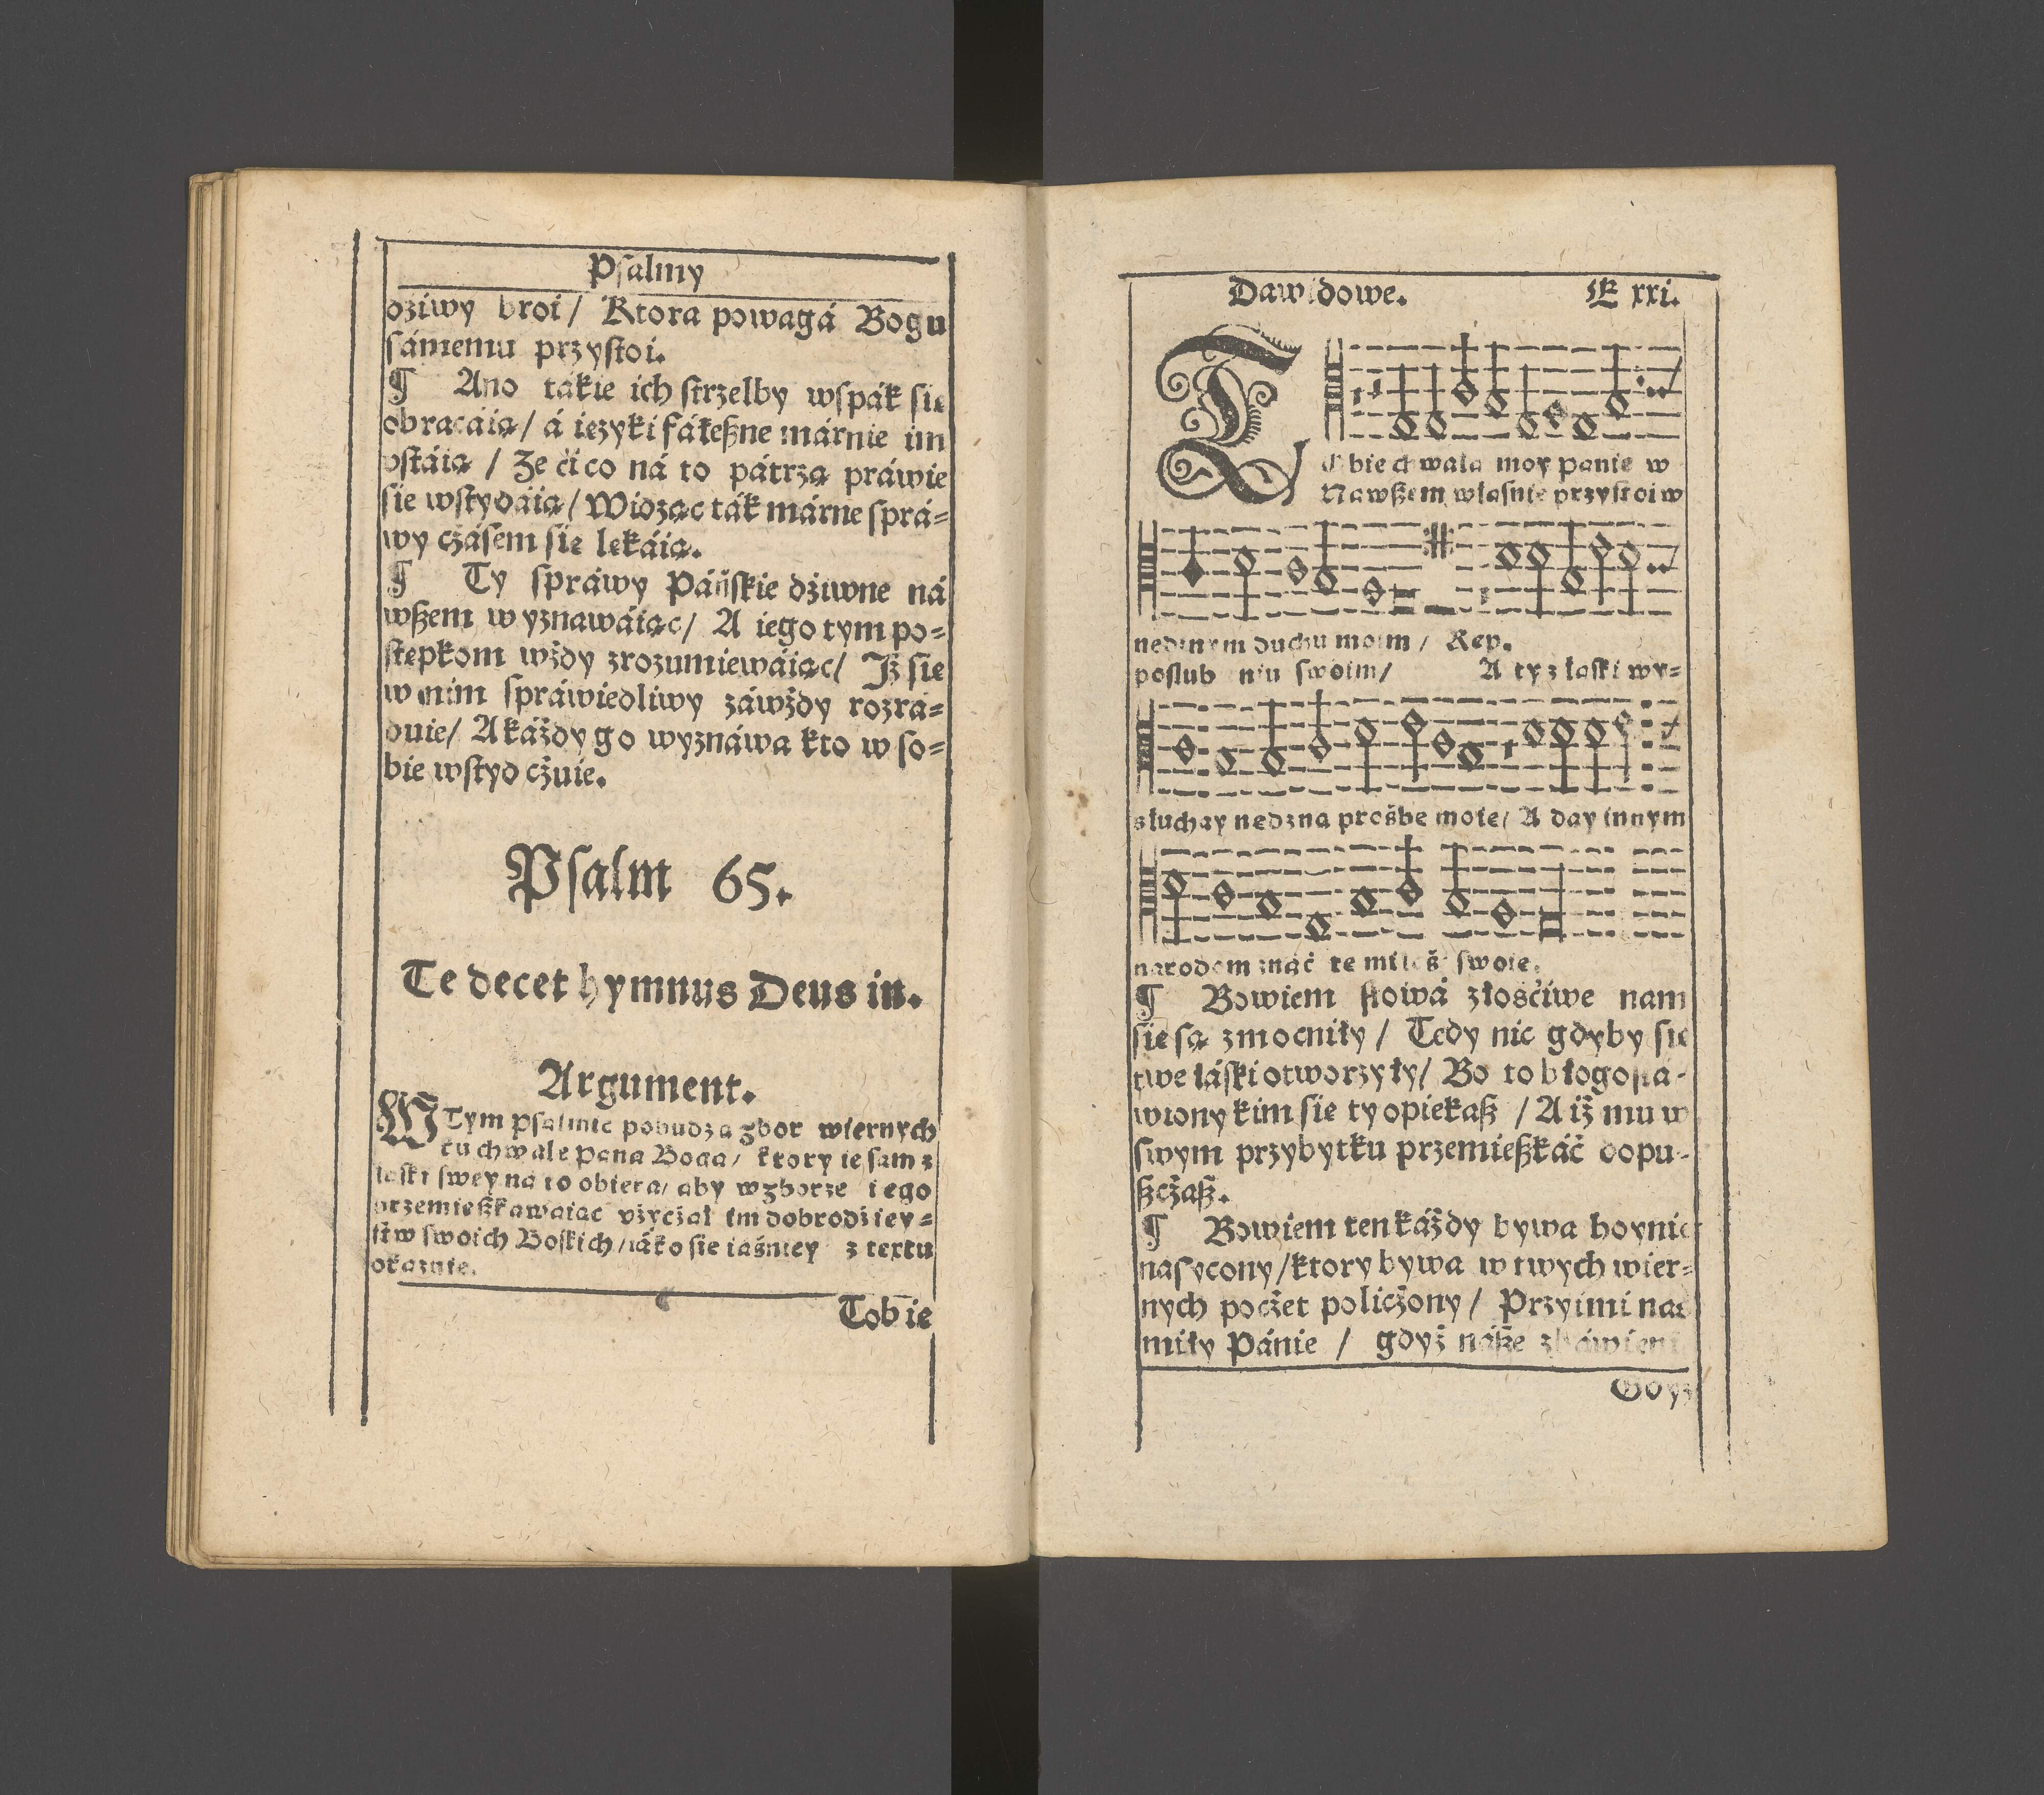 Psalmy
dziwy broi / Ktora powagá Bogu
sámemu przystoi.
¶ Ano tákie ich strzelby wspák sie
obracáią / á ięzyki fáłeßne márnie im
vstáią / Że ći co ná to pátrzą práwie
sie wstydáią / Widząc ták márne sprá⸗
wy cżásem sie lękáią.
¶ Ty spráwy Páńskie dźiwne ná
wßem wyznawáiąc / A iego tym po⸗
stępkom wżdy zrozumiewáiąc / Iż sie
w nim spráwiedliwy záwżdy rozrá⸗
duie / A káżdy go wyznáwa kto w so⸗
bie wstyd cżuie.
Psalm 65.
Te decet hymnus Deus in.
Argument.
W Tym psalmie pobudza zbor wiernych
ku chwale pana Boga / ktory ie sam z
łaski swey na to obiera / aby w zborze iego
przemießkawaiąc vżycżał im dobrodźiey⸗
stw swoich Boskich / iáko sie iáśniey z textu
okazuie.
Tobie
Dawidowe. K xxi.
TObie chwała moy panie w
Nawßem własnie przystoi w
nędznym duchu moim / Rep.
poslub niu swoim / A ty z łaski wy⸗
słuchay nędzna prośbę moię / A day innym
narodom znáć tę miłość swoię.
¶ Bowiem słowá złośćiwe nam
sie są zmocniły / Tedy nic gdyby sie
twe łáski otworzyły / Bo to błogosłá⸗
wiony kim sie ty opiekaß / A iż mu w
swym przybytku przemießkáć dopu⸗
ßcżaß.
¶ Bowiem ten káżdy bywa hoynie
nasycony / ktory bywa w twych wier⸗
nych pocżet policżony / Przyimi nas
miły Pánie / gdyż náße zbáwieni
Gdyż